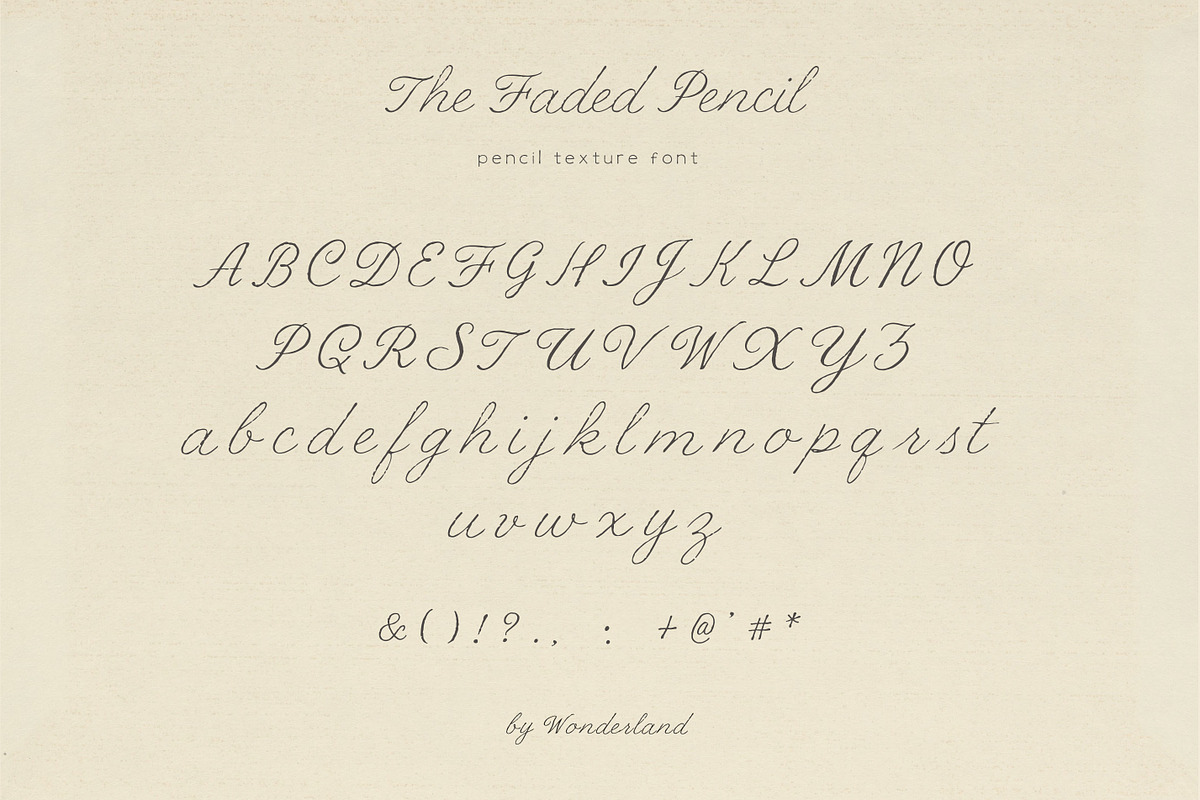 The Faded Pencil
pencil texture font
ABCDEFGHIJKLMNO
PQRSTUVWXYZ
abcdefghijklmnopqrst
uvwxyz
&()!?., : +@'#*
by Wonderland